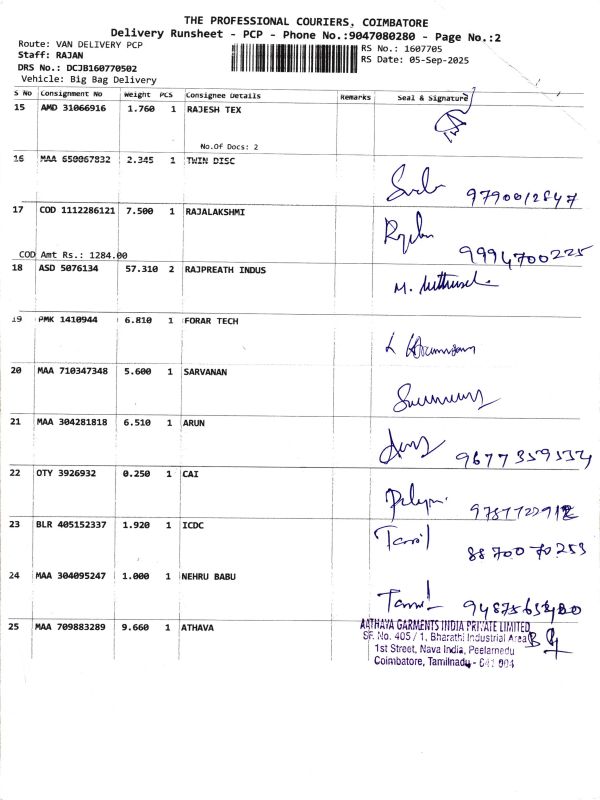 THE PROFESSIONAL COURIERS, COIMBATORE
Delivery Runsheet - PCP - Phone No.:9047080280 - Page No.:2
Route: VAN DELIVERY PCP
Staff: RAJAN
DRS No.: DCJB160770502
Vehicle: Big Bag Delivery
RS No.: 1607705
RS Date: 05-Sep-2025
S No Consignment No Weight PCS Consignee Details Remarks Seal & Signature
15 AMD 31066916 1.760 1 RAJESH TEX
No.Of Docs: 2
16 MAA 650067832 2.345 1 TWIN DISC
9790012847
17 COD 1112286121 7.500 1 RAJALAKSHMI
9994700225
COD Amt Rs.: 1284.00
18 ASD 5076134 57.310 2 RAJPREATH INDUS
M.
19 PMK 1410944 6.810 1 FORAR TECH
20 MAA 710347348 5.600 1 SARVANAN
21 MAA 304281818 6.510 1 ARUN
9677359534
22 OTY 3926932 0.250 1 CAI
23 BLR 405152337 1.920 1 ICDC
Tamil
8870070253
24 MAA 304095247 1.000 1 NEHRU BABU
Tamil
25 MAA 709883289 9.660 1 ATHAVA
AATHAVA GARMENTS INDIA PRIVATE LIMITED
SF. No. 405 / 1, Bharathi Industrial Area
1st Street, Nava India, Peelamedu
Coimbatore, Tamilnadu - 641 004